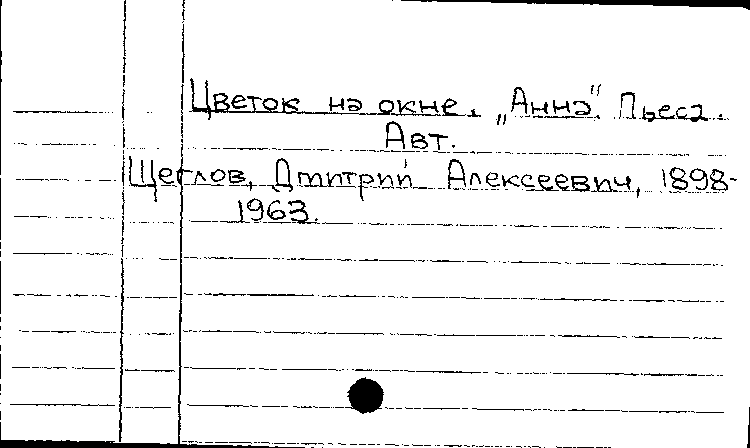 Цветок на окне. „Анна“. Пьеса.
Авт.
Щеглов, Дмитрий Алексеевич, 1898-
1963.